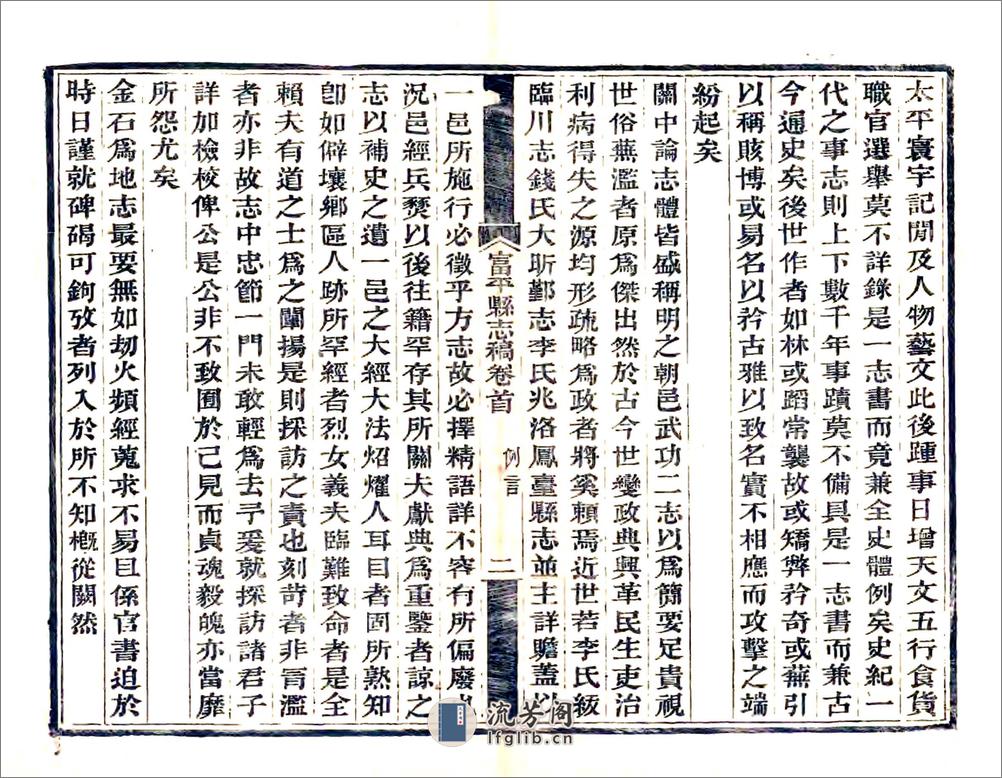 太平寰宇記閒及人物藝文此後踵事日增天文五行食貨
職官選舉莫不詳錄是一志書而竟兼全史體例矣史紀一
代之事志則上下數千年事蹟莫不備具是一志書而兼古
今通史矣後世作者如林或蹈常襲故或矯弊矜奇或蕪引
以稱賅博或易名以矜古雅以致名實不相應而攻擊之端
紛起矣
關中論志體皆盛稱明之朝邑武功二志以爲簡要足貴視
世俗蕪濫者原爲傑出然於古今世變政典興革民生吏治
利病得失之源均形疏略爲政者將奚賴焉近世若李氏紱
臨川志錢氏大昕鄞志李氏兆洛鳳臺縣志並主詳贍蓋以
富平縣志稿卷首 例言 二
一邑所施行必徵乎方志故必擇精語詳不容有所偏廢
況邑經兵燹以後往籍罕存其所關大獻典爲重鑒者諒之
志以補史之遺一邑之大經大法炤燿人耳目者固所熟知
卽如僻壤鄉區人跡所罕經者烈女義夫臨難致命者是全
賴夫有道之士爲之闡揚是則採訪之責也刻苛者非冐濫
者亦非故志中忠節一門未敢輕爲去予爰就採訪諸君子
詳加檢校俾公是公非不致囿於己見而貞魂毅魄亦當靡
所怨尤矣
金石爲地志最要無如刼火頻經蒐求不易且係官書迫於
時日謹就碑碣可鉤攷者列入於所不知槪從闕然
流芳阁
lfglib.cn